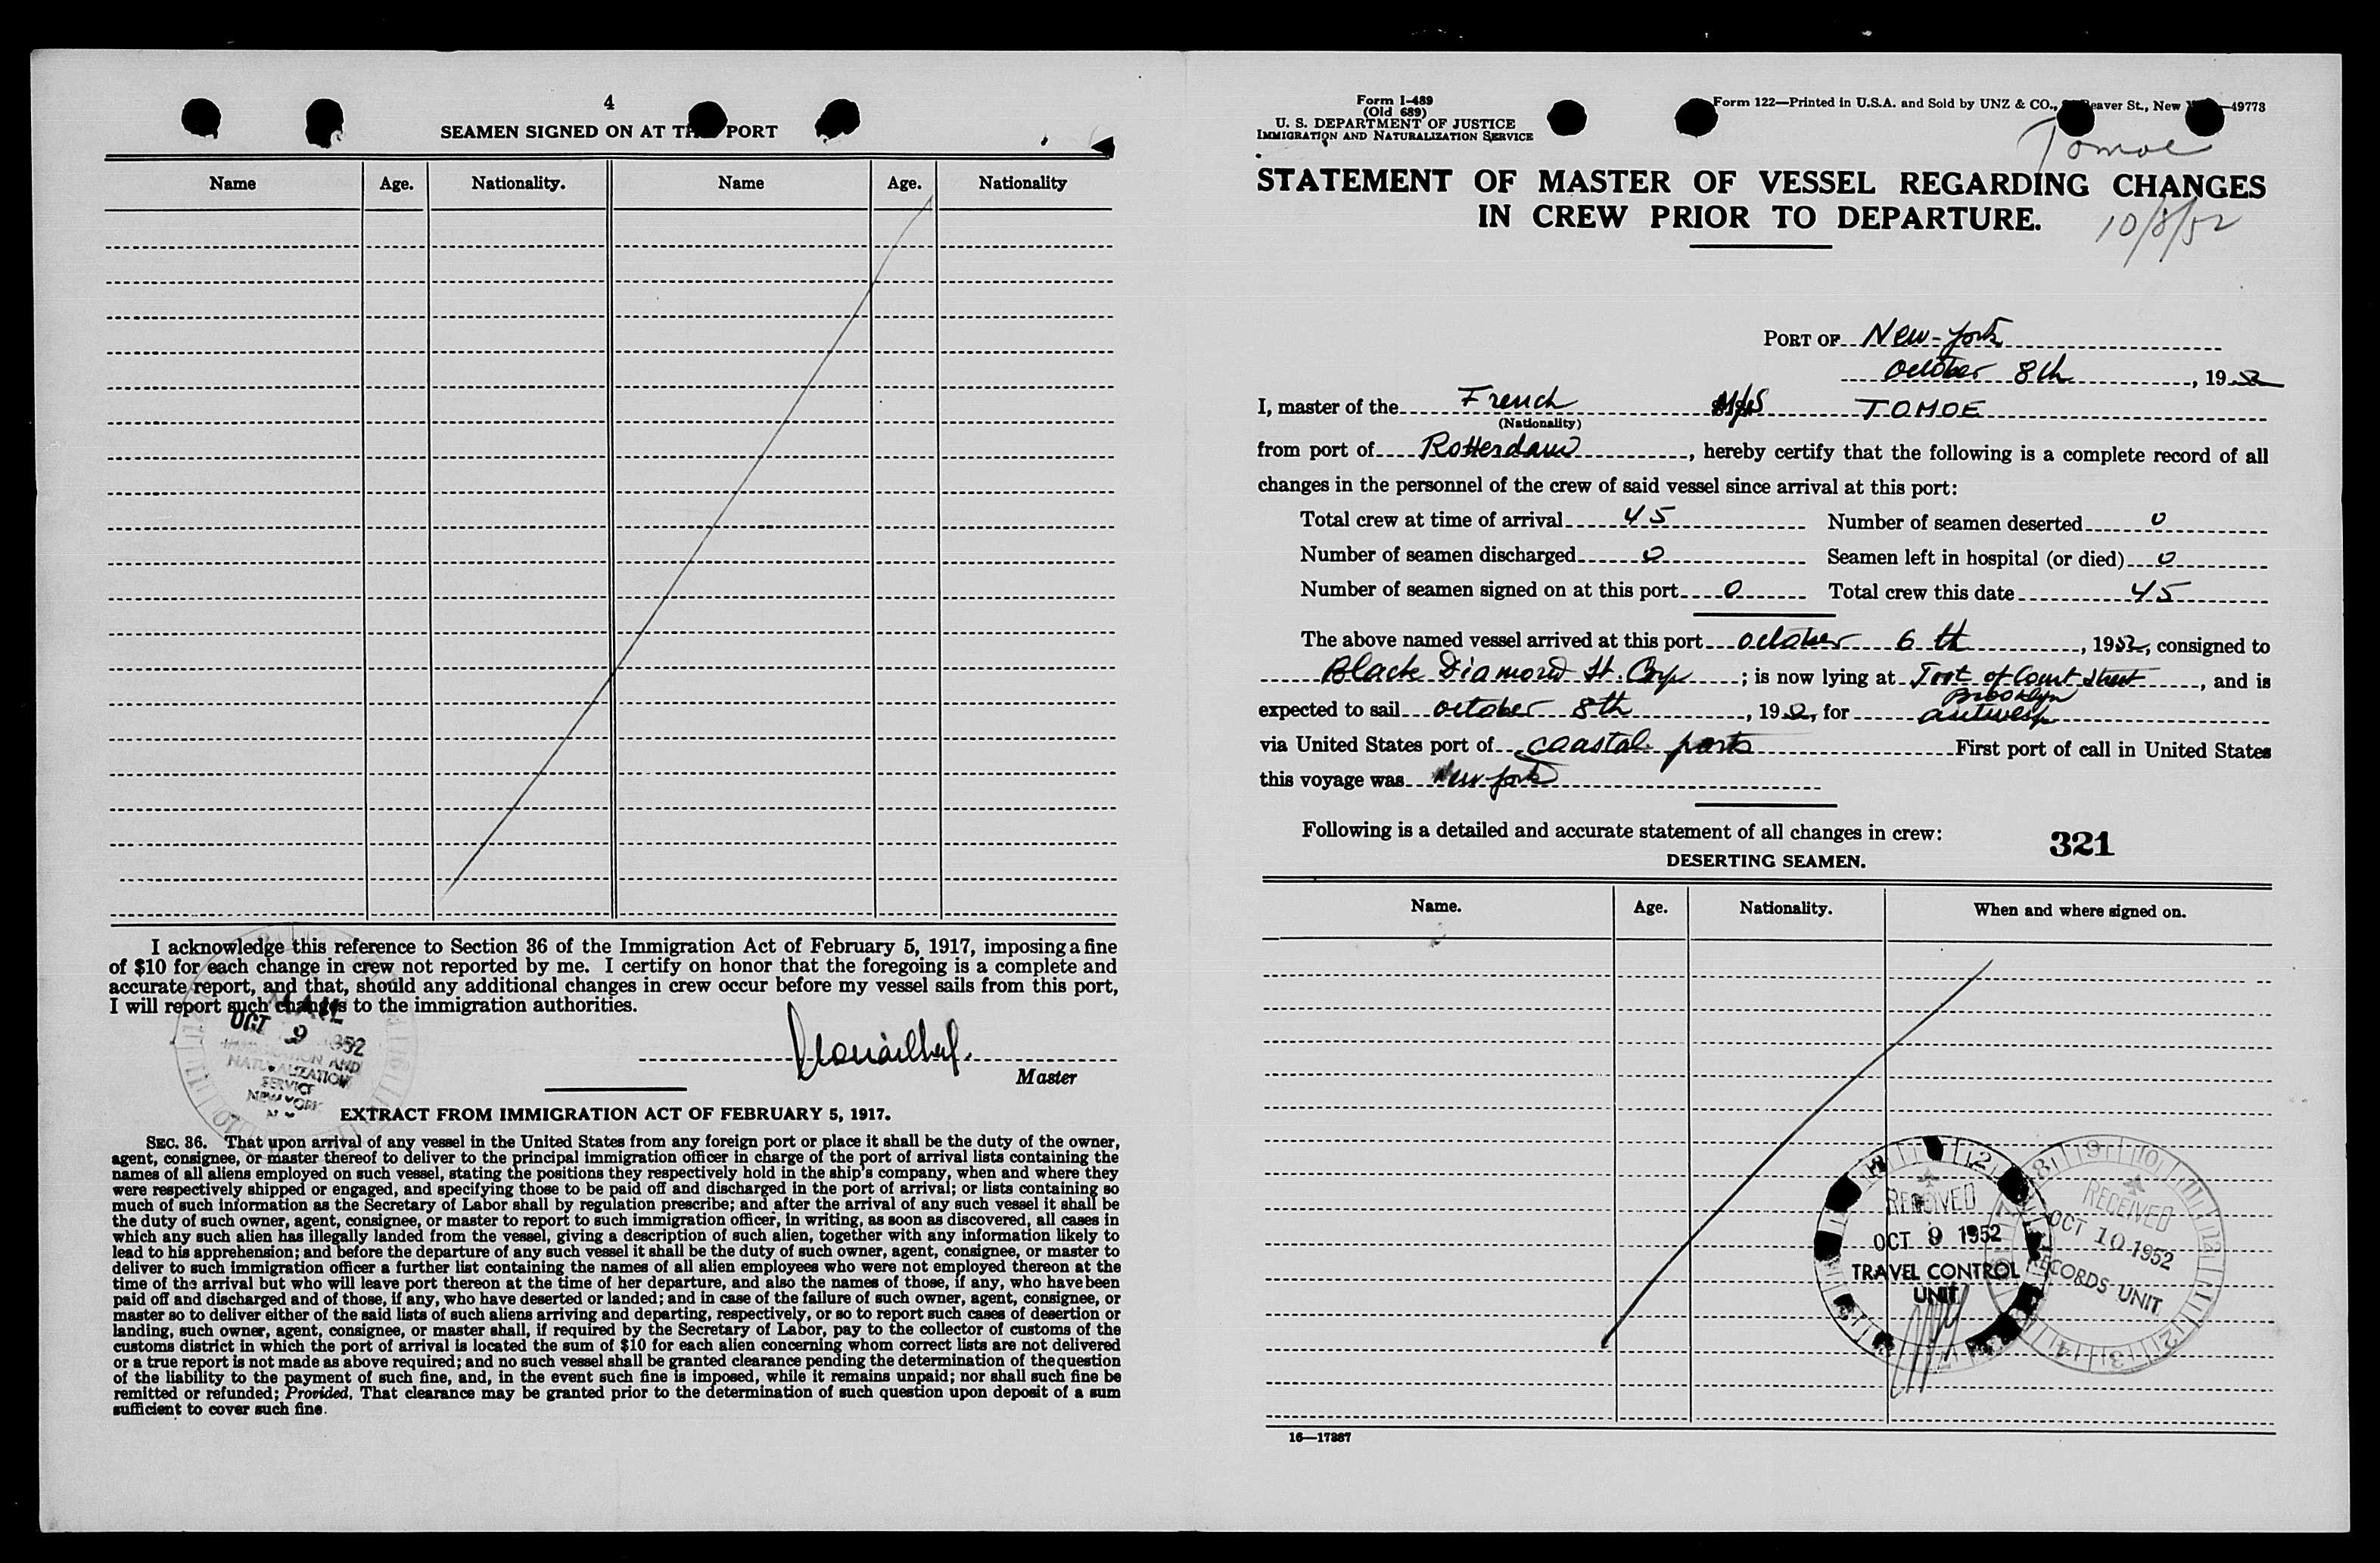 4
SEAMEN SIGNED ON AT PORT
Name Age. Nationality. Name Age. Nationality
I acknowledge this reference to Section 36 of the Immigration Act of February 5, 1917, imposing a fine
of $10 for each change in crew not reported by me. I certify on honor that the foregoing is a complete and
accurate report, and that, should any additional changes in crew occur before my vessel sails from this port,
I will report such changes to the immigration authorities.
OCT 9 1952
IMMIGRATION AND
NATURALIZATION
SERVICE
NEW YORK
Master
EXTRACT FROM IMMIGRATION ACT OF FEBRUARY 5, 1917.
SEC. 36. That upon arrival of any vessel in the United States from any foreign port or place it shall be the duty of the owner,
agent, consignee, or master thereof to deliver to the principal immigration officer in charge of the port of arrival lists containing the
names of all aliens employed on such vessel, stating the positions they respectively hold in the ship's company, when and where they
were respectively shipped or engaged, and specifying those to be paid off and discharged in the port of arrival; or lists containing so
much of such information as the Secretary of Labor shall by regulation prescribe; and after the arrival of any such vessel it shall be
the duty of such owner, agent, consignee, or master to report to such immigration officer, in writing, as soon as discovered, all cases in
which any such alien has illegally landed from the vessel, giving a description of such alien, together with any information likely to
lead to his apprehension; and before the departure of any such vessel it shall be the duty of such owner, agent, consignee, or master to
deliver to such immigration officer a further list containing the names of all alien employees who were not employed thereon at the
time of the arrival but who will leave port thereon at the time of her departure, and also the names of those, if any, who have been
paid off and discharged and of those, if any, who have deserted or landed; and in case of the failure of such owner, agent, consignee, or
master so to deliver either of the said lists of such aliens arriving and departing, respectively, or so to report such cases of desertion or
landing, such owner, agent, consignee, or master shall, if required by the Secretary of Labor, pay to the collector of customs of the
customs district in which the port of arrival is located the sum of $10 for each alien concerning whom correct lists are not delivered
or a true report is not made as above required; and no such vessel shall be granted clearance pending the determination of the question
of the liability to the payment of such fine, and, in the event such fine is imposed, while it remains unpaid; nor shall such fine be
remitted or refunded; Provided, That clearance may be granted prior to the determination of such question upon deposit of a sum
sufficient to cover such fine.
Form I-489
(Old 689)
U. S. DEPARTMENT OF JUSTICE
IMMIGRATION AND NATURALIZATION SERVICE
Form 122—Printed in U.S.A. and Sold by UNZ & CO., Beaver St., New —49778
Tomoe
STATEMENT OF MASTER OF VESSEL REGARDING CHANGES
IN CREW PRIOR TO DEPARTURE.
10/8/52
PORT OF New-York
October 8th, 1952
I, master of the French M/S TOMOE
(Nationality)
from port of Rotterdam, hereby certify that the following is a complete record of all
changes in the personnel of the crew of said vessel since arrival at this port:
Total crew at time of arrival 45 Number of seamen deserted 0
Number of seamen discharged 0 Seamen left in hospital (or died) 0
Number of seamen signed on at this port 0 Total crew this date 45
The above named vessel arrived at this port October 6th, 1952, consigned to
Black Diamond St. Corp; is now lying at Foot of Court Street, and is
Brooklyn
expected to sail October 8th, 192, for Antwerp
via United States port of coastal ports First port of call in United States
this voyage was New-York
Following is a detailed and accurate statement of all changes in crew:
321
DESERTING SEAMEN.
Name. Age. Nationality. When and where signed on.
RECEIVED
OCT 9 1952
TRAVEL CONTROL
UNIT
RECEIVED
OCT 10 1952
RECORDS UNIT
16—17387